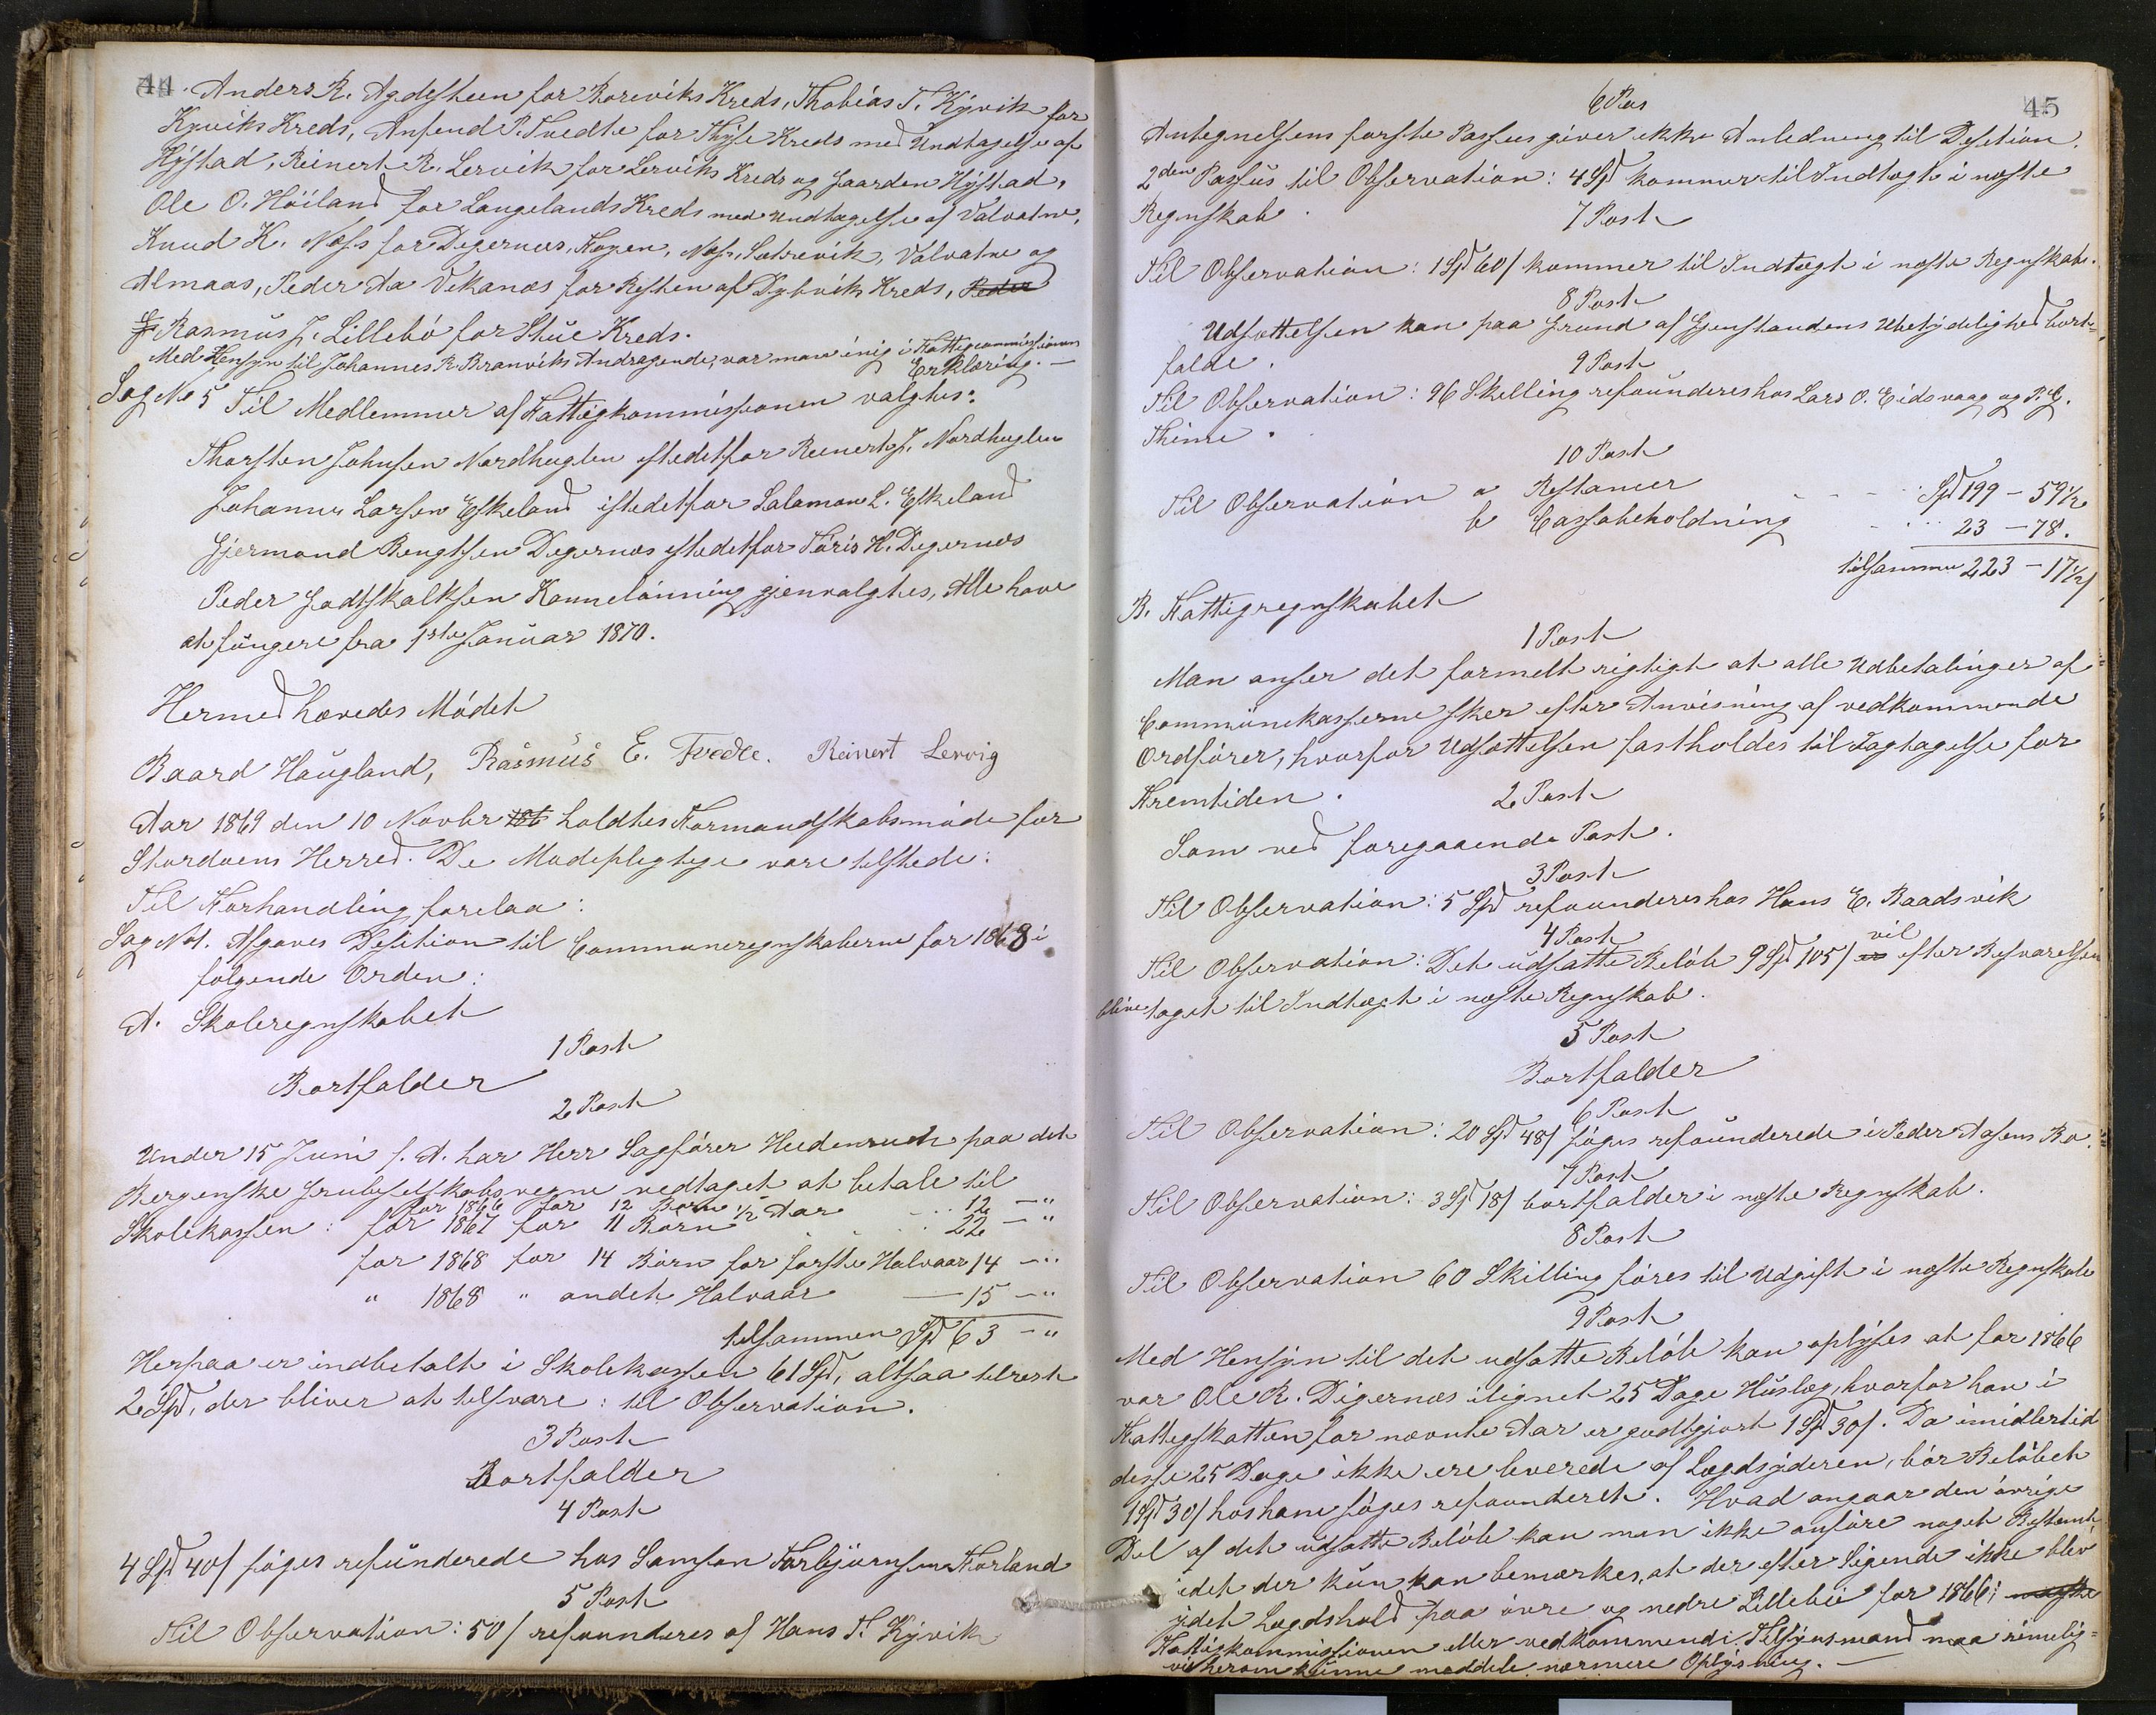 44
Anders R. Agdesteen for Rorevíks Kreds, Thobías T. Kÿvik for
Kyviks Kreds, Anfend P. Tvedte for Thÿse Kreds med Undtagelse af
Hÿstad, Reinert R. Lervik for Lervíks Kreds og Gaarden Hÿstad,
Ole O. Höiland for Langelands Kreds med Undtagelse af Valvatne,
Knud K. Næss for Degernæs, Hagen, Næss, Sætrevík, Valvatne og
Almaas, Peder Aa Vikanæs for Resten af Dybvík Kreds, Peder
Rasmus J. Lillebö for Stue Kreds.
Med Hensyn til Johannes R. Branvíks Andragende, var man ening i Fattigcommíssionens
Erklæring. —
Sag No 5 Til Medlemmer af Fattigkommissionen valgtes:
Thorsten Johnsen Nordhuglen istedetfor Reinert J. Nordhuglen
Johannes Larsen Eskeland istedetfor Salamon L. Eskeland
Gjermond Bengtsen Degernæs istedetfor Töris H. Degernæs
Peder Godtskalksen Kannelönning gjenvalgtes, Alle have
at fungere fra 1ste Januar 1870.
Hermed hævedes Mödet
Baard Haugland, Rasmus E. Tvedte. Reinert Lervig
Aar 1869 den 10 Novbr 186 holdtes Formandskabsmöde for
Stordöens Herred. De Mødepligtige vare tilstede:
Til Forhandling forelaa:
Sag No 1. Afgaves Desition til Communeregnskaberne for 1868 i
følgende Orden:
A. Skoleregnskabet
1 Post
Bortfalder
2 Post
Under 15 Juni f. A. har Herr Sagförer Heidenruch paa det
Bergenske Grubeselskabs vegne vedtaget at betale til
for 1866 for 12 Børn 1/2 Aar . . . 12 — "
Skolekassen: for 1867 for 11 Børn . . . 22 — "
for 1868 for 14 Börn for første Halvaar 14 — "
" 1868 " andet Halvaar — 15 — "
tilsammen Spd 63 — "
Herpaa er indbetalt i Skolekassen 61 Spd, altsaa tilrest
2 Spd, der bliver at tilsvare: til Observation.
3 Post
Bortfalder
4 Post
4 Spd 40 s söges refunderede hos Samson Torbjörnsen Förland
5 Post
Til Observation: 50 s refunderes af Hans T. Kÿvik
45
6 Pos
Antegnelsens første Passus giver ikke Anledning til Desition.
2den Passus til Observation: 4 Spd kommer til Indtægt i næste
Regnskab.
7 Post
Til Observation: 1 Spd 60 s kommer til Indtægt i næste Regnskab.
8 Post
Udsættelsen kan paa Grund af Gjenstandens Ubetydelighed bort-
falde.
9 Post
Til Observation: 96 Skelling refounderes hos Lars O. Eidsvaag og P. E.
Thime.
10 Post
Til Observation a Restancer . . . Spd 199 — 59 1/2
b Cassabeholdning . . . 23 — 78.
tilsammen 223 — 17 1/2 s
B. Fattigregnskabet
1 Post
Man anser det formelt rigtigt at alle Udbetalinger af
Communekasserne sker efter Anvisning af vedkommende
Ordförer, hvorfor Udsættelsen fastholdes til Iagtagelse for
Fremtiden.
2 Post
Som ved foregaaende Post.
3 Post
Til Observation: 5 Spd refounderes hos Hans E. Baadsvik
4 Post
Til Observation: Det udsatte Belöb 9 Spd 105 s vil efter Besvarelsen
blive taget til Indtægt i næste Regnskab.
5 Post
Bortfalder
6 Post
Til Observation: 20 Spd 48 s söges refounderede i Peder Aasens Bo.
7 Post
Til Observation: 3 Spd 18 s bortfalder i næste Regnskab.
8 Post
Til Observation 60 Skilling föres til Udgift i næste Regnskab
9 Post
Med Hensÿn til det udsatte Belöb kan oplÿses at for 1866
var Ole R. Digernæs ilignet 25 Dage Huslæg, hvorfor han i
Fattigskatten for nævnte Aar er godtgjort 1 Spd 30 s. Da imidlertid
disse 25 Dage ikke ere leverede af Lægdsÿderen, bör Belöbet
1 Spd 30 s hos ham söges refounderet. Hvad angaar den övrige
Del af det udsatte Belöb kan man ikke anföre noget Bestemt
idet der kun kan bemærkes, at der efter Sigende ikke blev
ÿdet Lægdshold paa övre og nedre Lillebö for 1866;
Fattigkommissionen eller vedkommende Tilsÿnsmand maa rimelig-
vis herom kunne meddele nærmere Oplÿsning. —